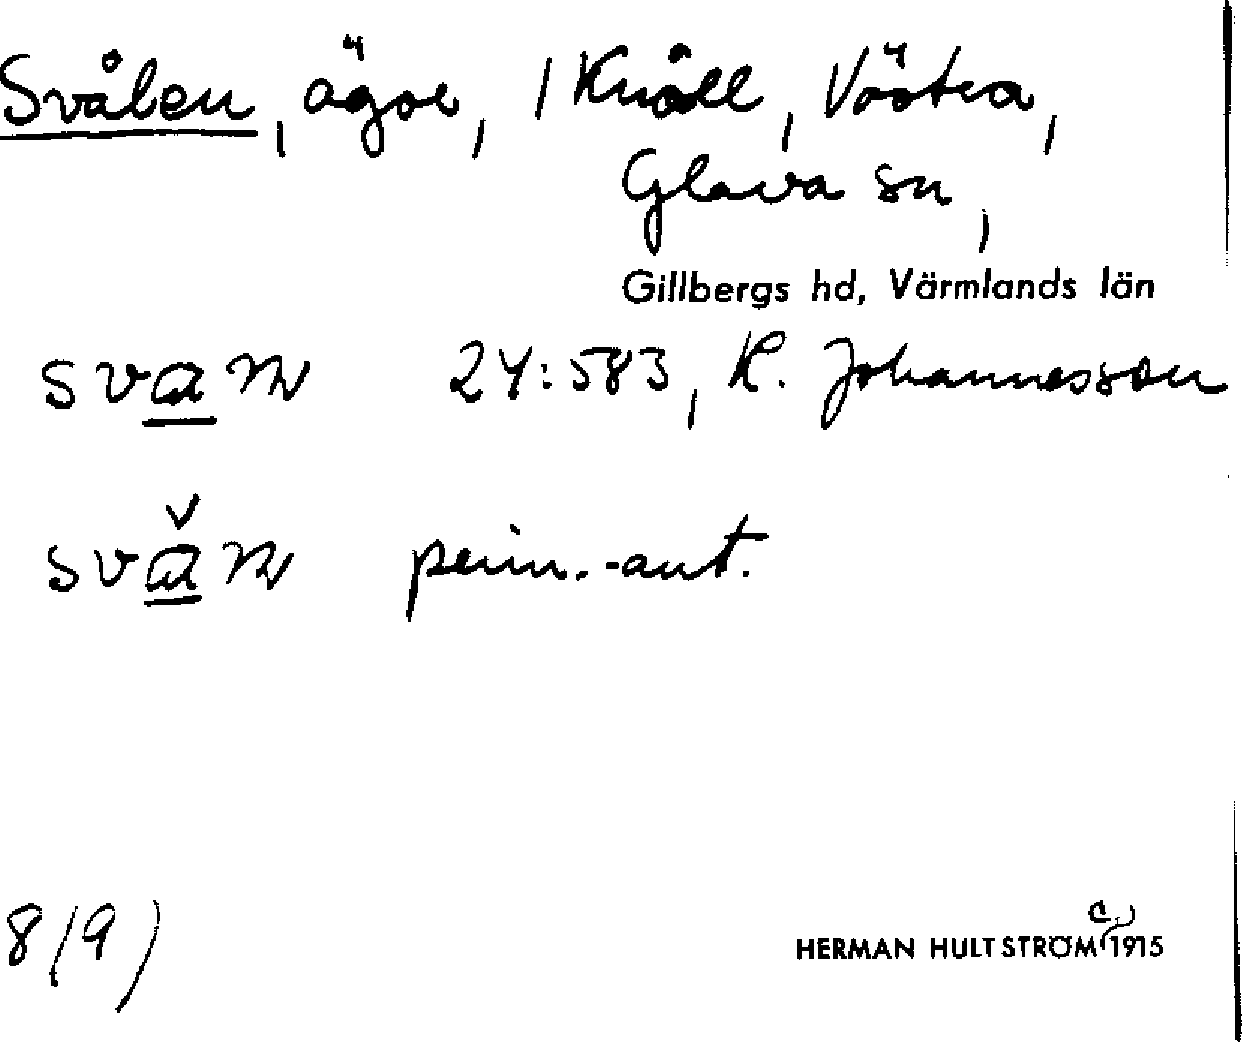 Svålen, ägor, 1 Knöll, Västra,
Glava sn,
Gillbergs hd, Värmlands län
24:583, K. Johannesson
perm.-ant.
8(9)
HERMAN HULTSTRÖM c.) 1915